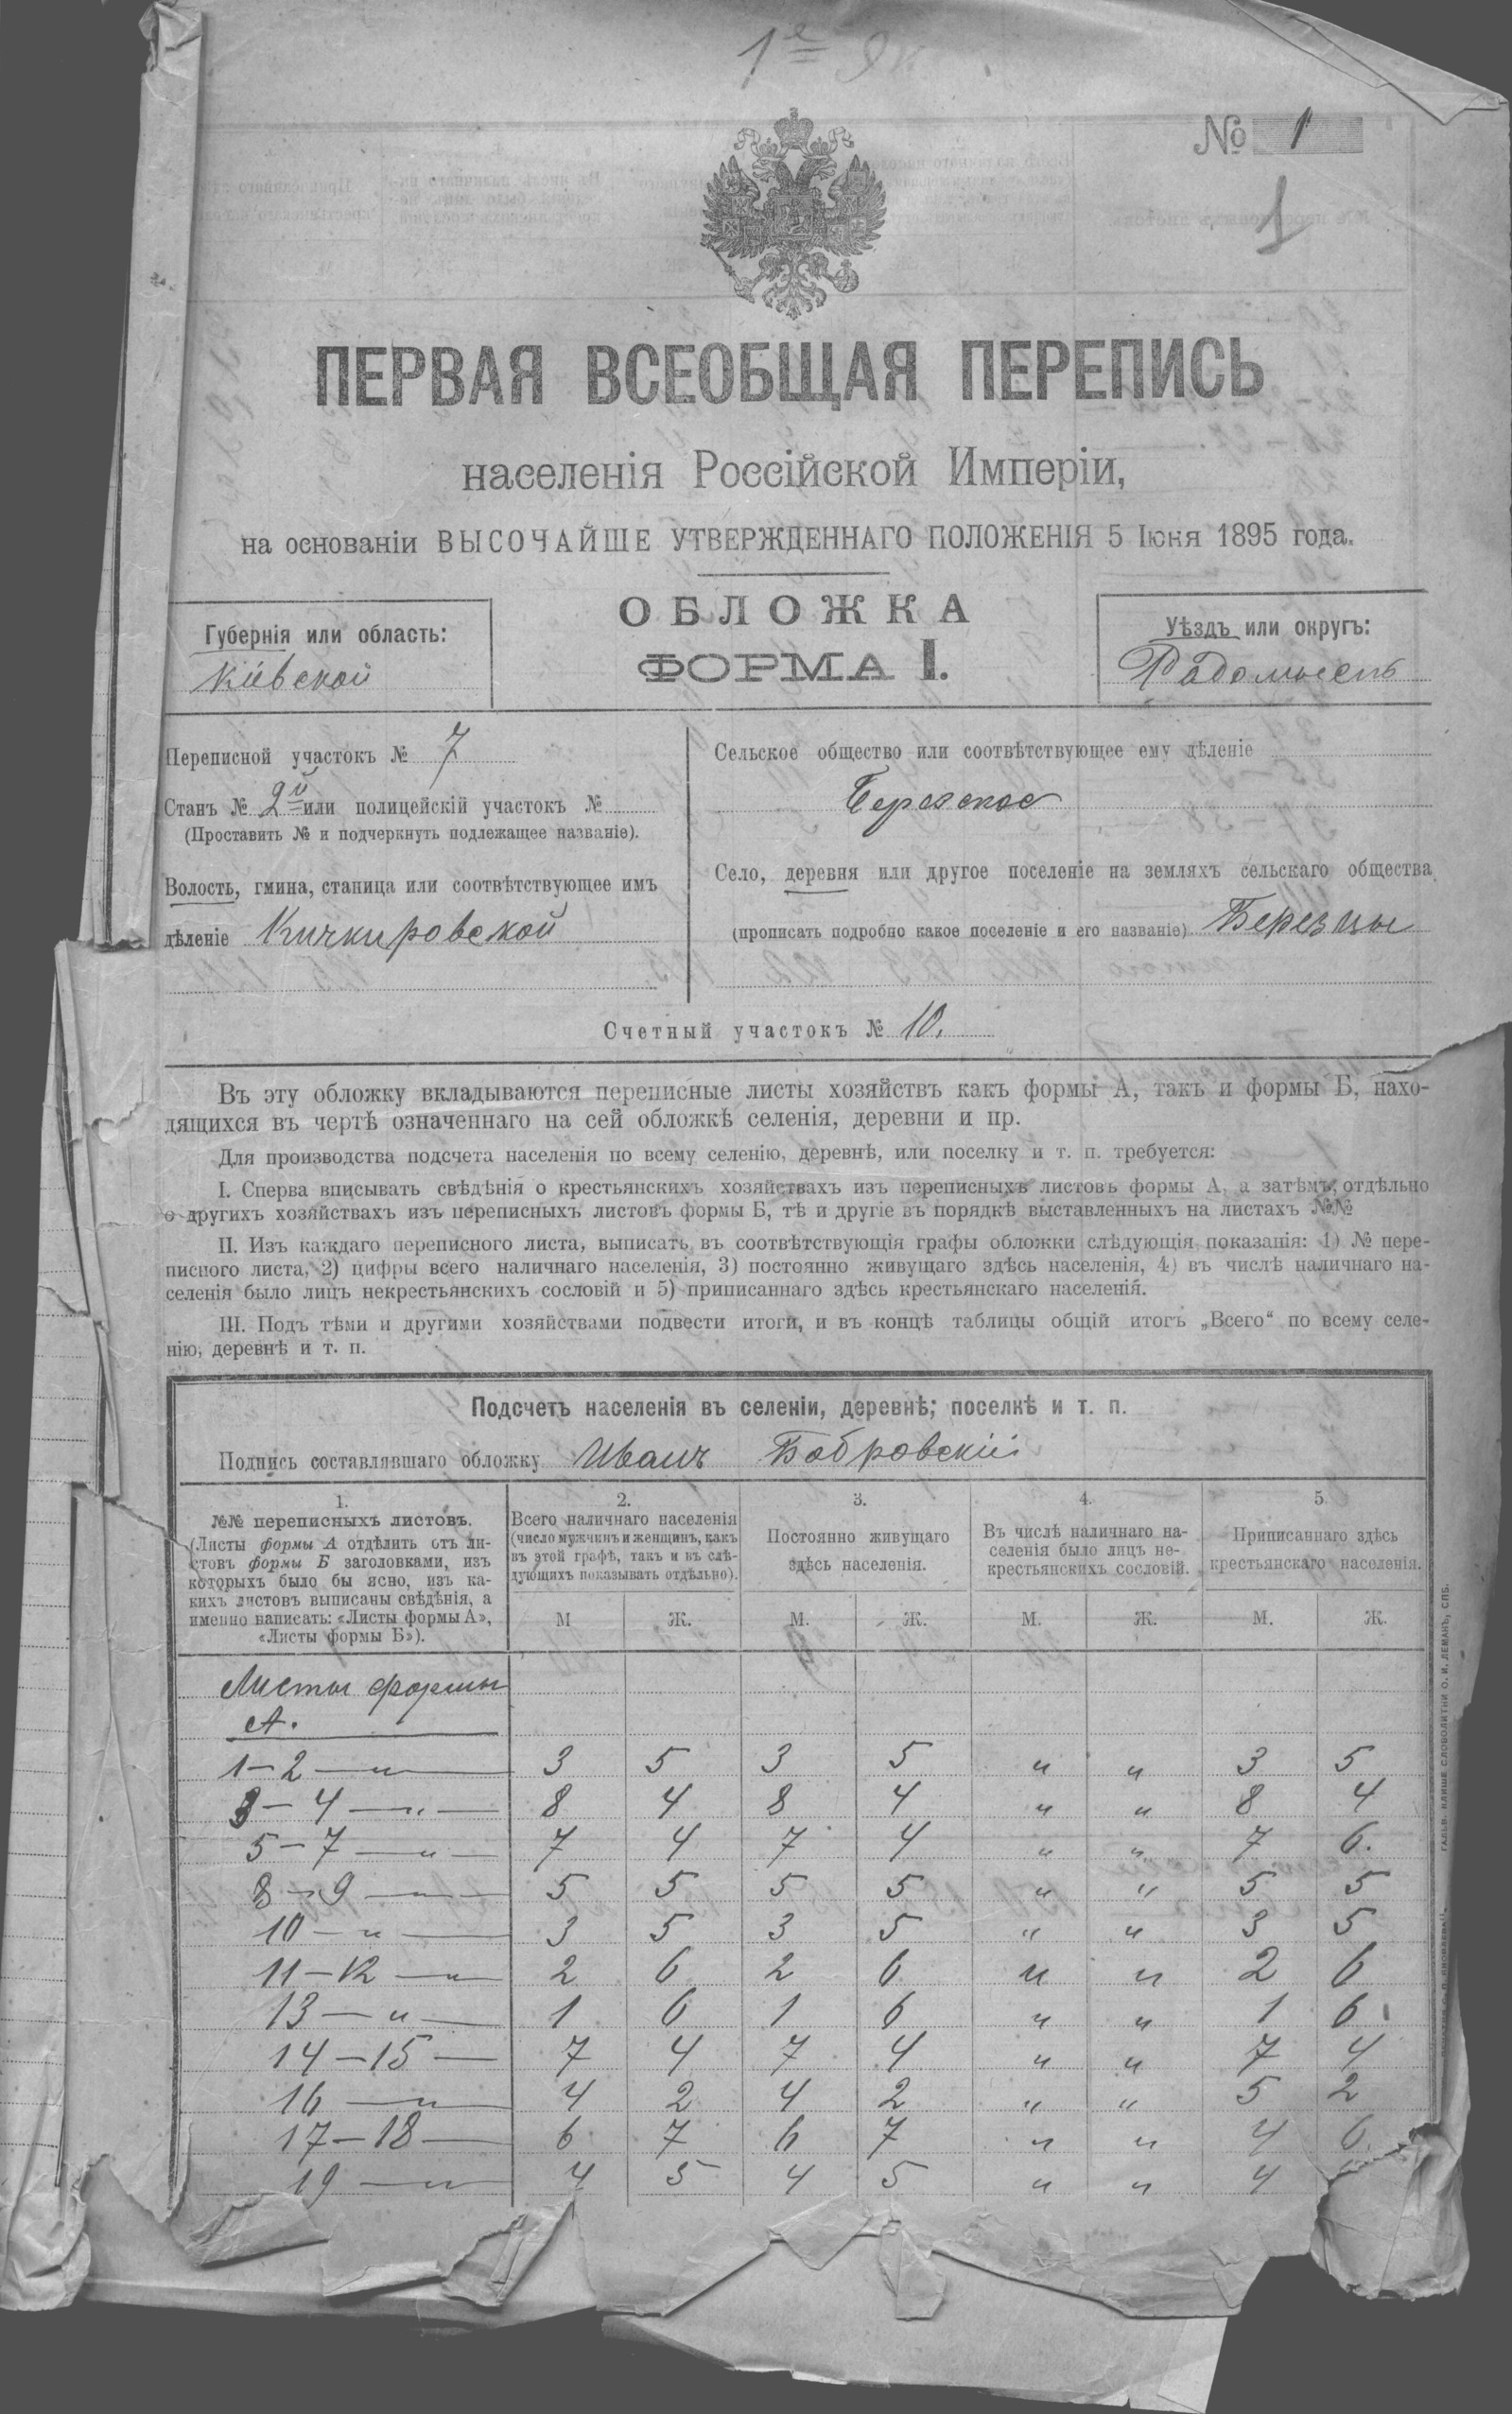 1е
№ 1
1
ПЕРВАЯ ВСЕОБЩАЯ ПЕРЕПИСЬ
населенія Россійской Имперіи,
на основаніи ВЫСОЧАЙШЕ УТВЕРЖДЕННАГО ПОЛОЖЕНІЯ 5 Іюня 1895 года.
ОБЛОЖКА
ФОРМА I.
Губернія или область:
Кіевской
Уѣздъ или округъ:
Переписной участокъ № 7
Станъ № 2й или полицейскій участокъ №
(Проставить № и подчеркнуть подлежащее названіе).
Волость, гмина, станица или соотвѣтствующее имъ
дѣленіе Кичкировской
Сельское общество или соотвѣтствующее ему дѣленіе
Село, деревня или другое поселеніе на земляхъ сельскаго общества
(прописать подробно какое поселеніе и его названіе) Березцы
Счетный участокъ № 10.
Въ эту обложку вкладываются переписные листы хозяйствъ какъ формы А, такъ и формы Б, нахо-
дящихся въ чертѣ означеннаго на сей обложкѣ селенія, деревни и пр.
Для производства подсчета населенія по всему селенію, деревнѣ, или поселку и т. п. требуется:
I. Сперва вписывать свѣдѣнія о крестьянскихъ хозяйствахъ изъ переписныхъ листовъ формы А, а затѣмъ, отдѣльно
о другихъ хозяйствахъ изъ переписныхъ листовъ формы Б, тѣ и другіе въ порядкѣ выставленныхъ на листахъ №№
II. Изъ каждаго переписного листа, выписать въ соотвѣтствующія графы обложки слѣдующія показанія: 1) № пере-
писного листа, 2) цифры всего наличнаго населенія, 3) постоянно живущаго здѣсь населенія, 4) въ числѣ наличнаго на-
селенія было лицъ некрестьянскихъ сословій и 5) приписаннаго здѣсь крестьянскаго населенія.
III. Подъ тѣми и другими хозяйствами подвести итоги, и въ концѣ таблицы общій итогъ „Всего“ по всему селе-
нію, деревнѣ и т. п.
Подсчетъ населенія въ селеніи, деревнѣ; поселкѣ и т. п.
Подпись составлявшаго обложку Иванъ Бобровскій
1.
№№ переписныхъ листовъ.
(Листы формы А отдѣлить отъ ли-
стовъ формы Б заголовками, изъ
которыхъ было бы ясно, изъ ка-
кихъ листовъ выписаны свѣдѣнія, а
именно написать: «Листы формы А»,
«Листы формы Б»).
2.
Всего наличнаго населенія
(число мужчинъ и женщинъ, какъ
въ этой графѣ, такъ и въ слѣ-
дующихъ показывать отдѣльно).
3.
Постоянно живущаго
здѣсь населенія.
4.
Въ числѣ наличнаго на-
селенія было лицъ не-
крестьянскихъ сословій.
5
Приписаннаго здѣсь
крестьянскаго населенія.
М Ж. М. Ж. М. Ж. М. Ж.
Листы формы
А.
1–2 — „ — 3 5 3 5 „ „ 3 5
3–4 — „ — 8 4 8 4 „ „ 8 4
5–7 — „ — 7 4 7 4 „ „ 7 6.
8–9 — „ — 5 5 5 5 „ „ 5 5
10 — „ — 3 5 3 5 „ „ 3 5
11–12 — „ 2 6 2 6 „ „ 2 6
13 — „ — 1 6 1 6 „ „ 1 6
14–15 — 7 4 7 4 „ „ 7 4
16 — „ — 4 2 4 2 „ „ 5 2
17–18 — 6 7 6 7 „ „ 4 6.
19 — „ — 4 5 4 5 „ „ 4